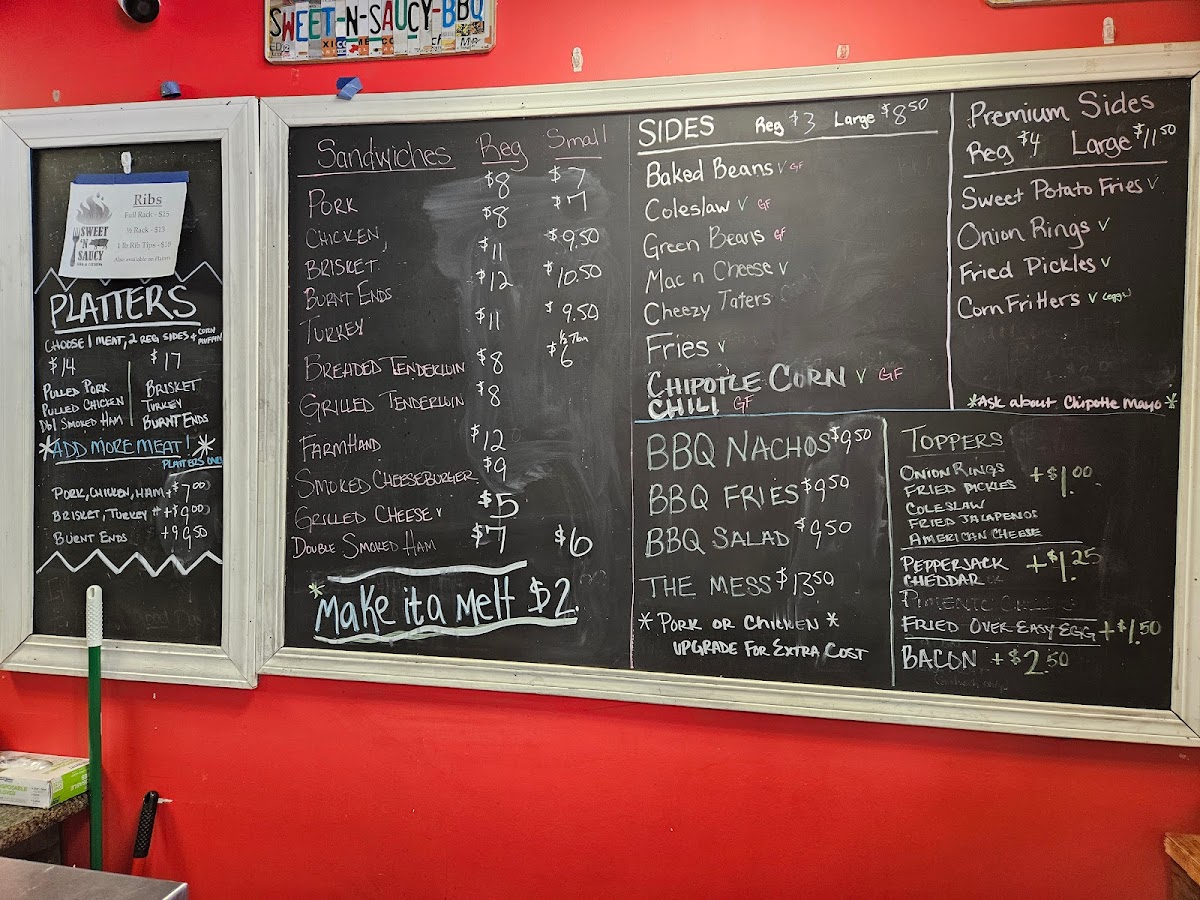 SWEET-N-SAUCY-BBQ
Ribs
Full Rack - $25
½ Rack - $13
1 lb Rib Tips - $10
Also available as Platters
SWEET
'N
SAUCY
PLATTERS
CHOOSE 1 MEAT, 2 REG SIDES + CORN MUFFIN
$14 $17
PULLED PORK BRISKET
PULLED CHICKEN TURKEY
Dbl SMOKED HAM BURNT ENDS
*ADD MORE MEAT! *
PLATTERS ONLY
PORK, CHICKEN, HAM +$7.00
BRISKET, TURKEY +$9.00
BURNT ENDS +9.50
Sandwiches Reg Small
PORK $8 $7
CHICKEN $8 $7
BRISKET $11 $9.50
BURNT ENDS $12 10.50
TURKEY $11 $9.50
BREADED TENDERLOIN $8 $6
GRILLED TENDERLOIN $8
FARMHAND $12
SMOKED CHEESEBURGER $9
GRILLED CHEESE V $5
DOUBLE SMOKED HAM $7 $6
* Make it a Melt $2.
SIDES Reg $3 Large $8.50
Baked Beans V GF
Coleslaw V GF
Green Beans GF
Mac n Cheese V
Cheezy Taters
Fries V
CHIPOTLE CORN V GF
CHILI GF
Premium Sides
Reg $4 Large $11.50
Sweet Potato Fries V
Onion Rings V
Fried Pickles V
Corn Fritters V
*Ask about Chipotle Mayo*
BBQ NACHOS $9.50
BBQ FRIES $9.50
BBQ SALAD $9.50
THE MESS $13.50
* PORK OR CHICKEN *
UPGRADE FOR EXTRA COST
TOPPERS
ONION RINGS +$1.00
FRIED PICKLES
COLESLAW
FRIED JALAPENOS
AMERICAN CHEESE
PEPPERJACK +$1.25
CHEDDAR
PIMENTO CHEESE
FRIED OVER-EASY EGG +$1.50
BACON +$2.50